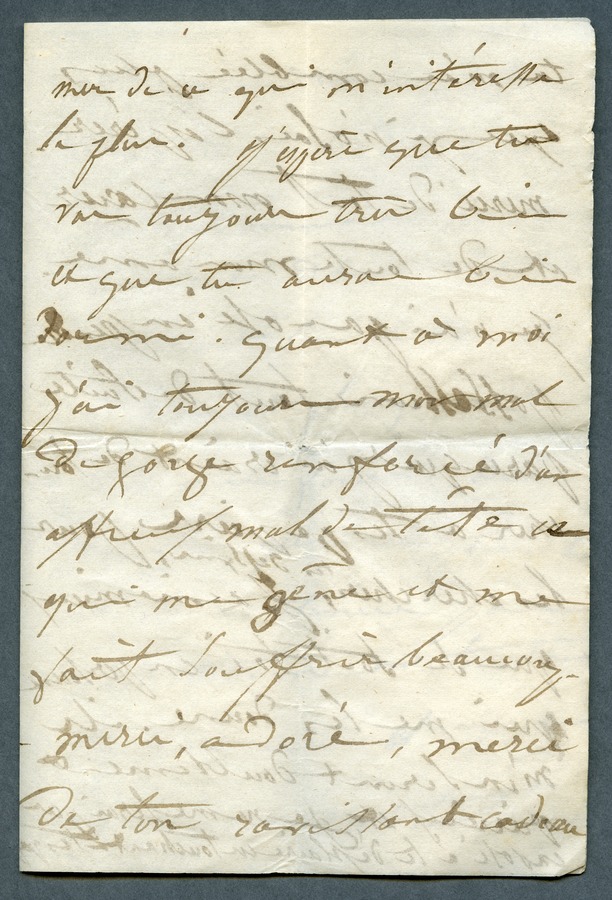 mer de ce qui m'intéresse
le plus. J'espère que tu
vas toujours très bien
et que tu auras bien
dormi. quant à moi
j'ai toujours mon mal
de gorge renforcé d'un
affreux mal de tête ce
qui me gêne et me
fait souffrir beaucoup.
merci, adoré, merci
de ton ravissant cadeau